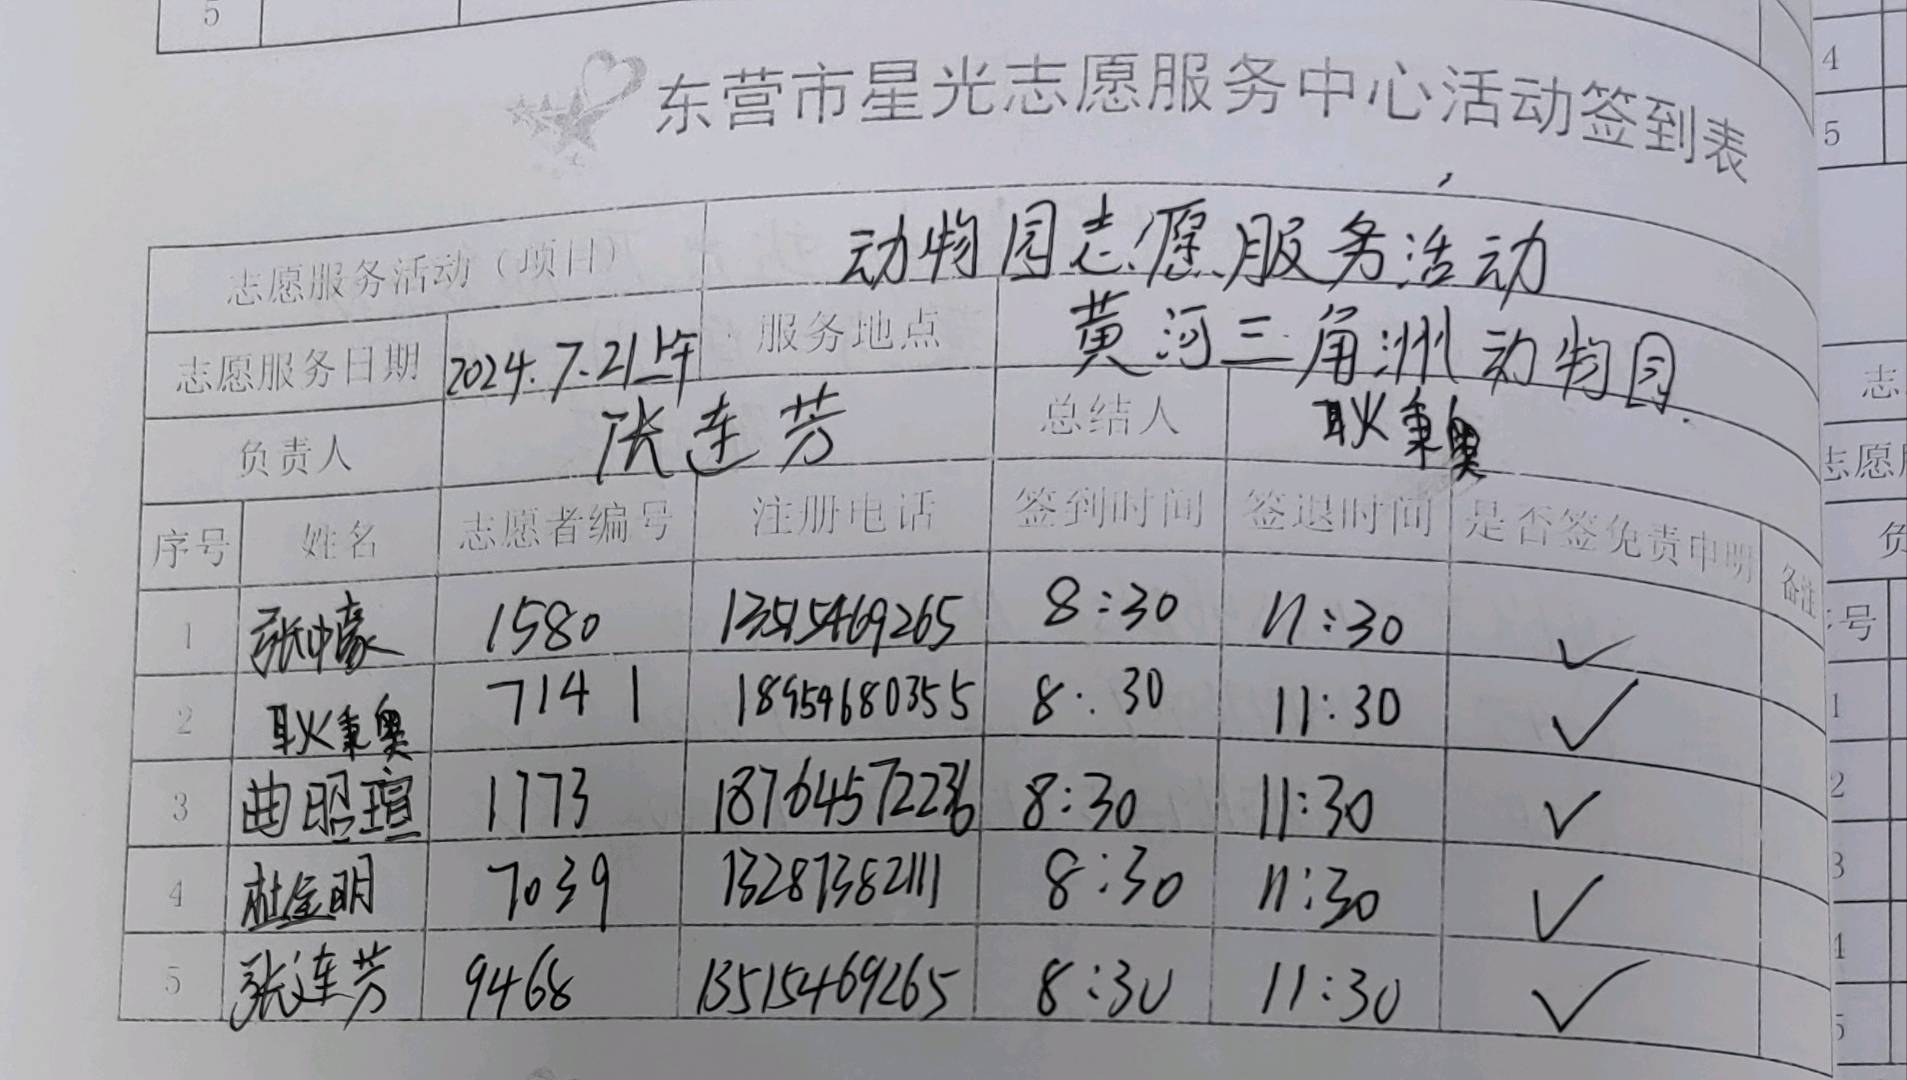 5
东营市星光志愿服务中心活动签到表
志愿服务活动（项目） 动物园志愿服务活动
志愿服务日期 2024.7.21上午 服务地点 黄河三角洲动物园
负责人 张连芳 总结人 耿秉奥
序号 姓名 志愿者编号 注册电话 签到时间 签退时间 是否签免责申明 备注
1 张中豪 1580 13515469265 8:30 11:30 ✓
2 耿秉奥 7141 18954680355 8:30 11:30 ✓
3 曲昭瑄 1773 18764572236 8:30 11:30 ✓
4 杜金明 7039 13287382111 8:30 11:30 ✓
5 张连芳 9468 13515469265 8:30 11:30 ✓
4
5
志
志愿
负
号
1
2
3
4
5